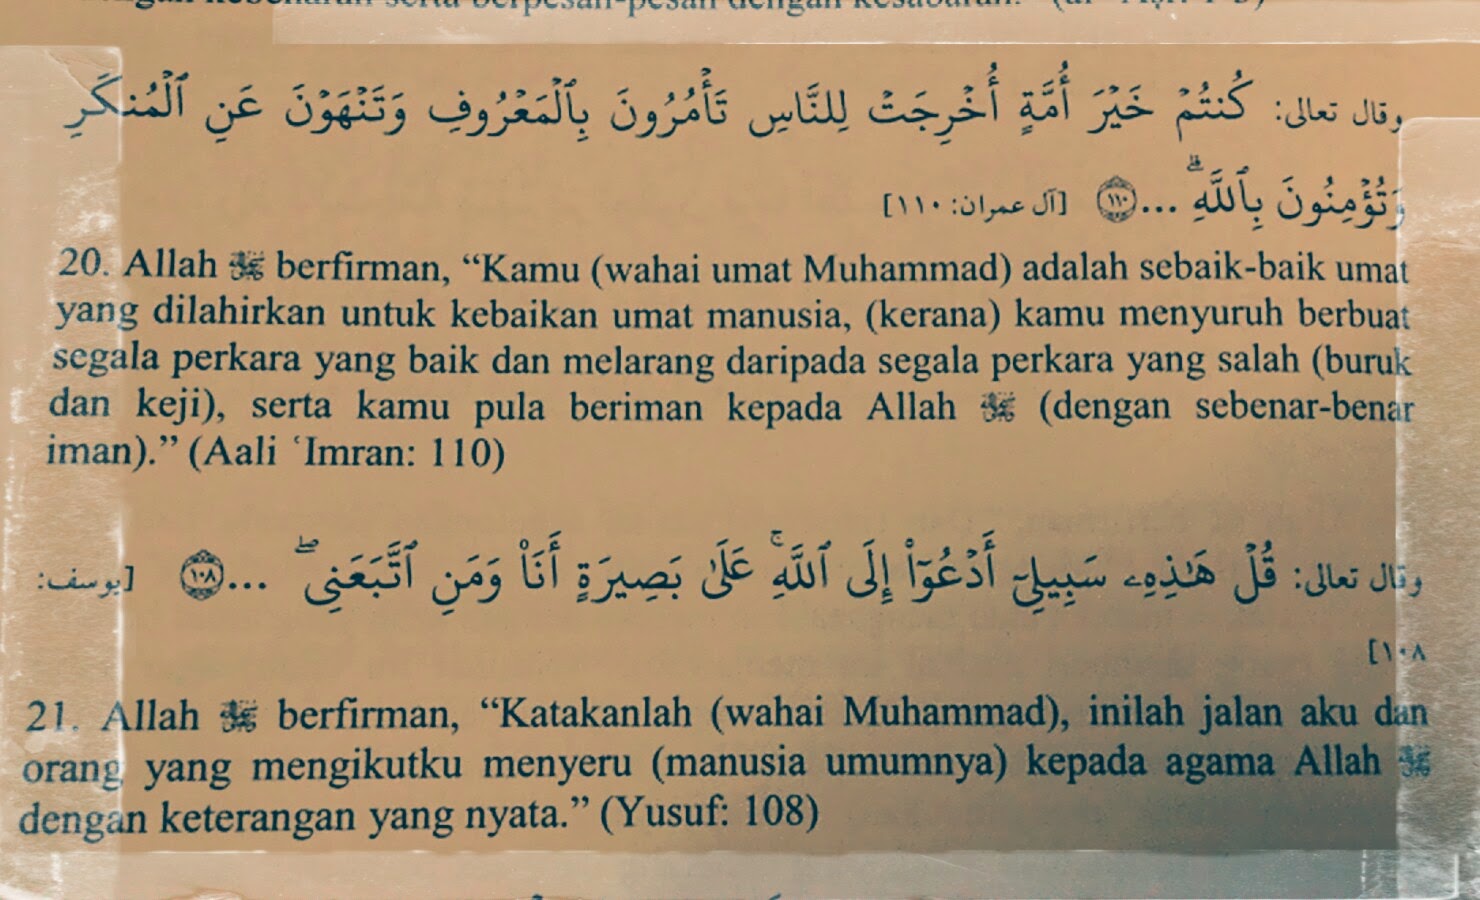 وقال تعالى: كُنتُمْ خَيْرَ أُمَّةٍ أُخْرِجَتْ لِلنَّاسِ تَأْمُرُونَ بِٱلْمَعْرُوفِ وَتَنْهَوْنَ عَنِ ٱلْمُنكَرِ
وَتُؤْمِنُونَ بِٱللَّهِ ۗ ... ١١٠ [آل عمران: ١١٠]
20. Allah ﷻ berfirman, “Kamu (wahai umat Muhammad) adalah sebaik-baik umat
yang dilahirkan untuk kebaikan umat manusia, (kerana) kamu menyuruh berbuat
segala perkara yang baik dan melarang daripada segala perkara yang salah (buruk
dan keji), serta kamu pula beriman kepada Allah ﷻ (dengan sebenar-benar
iman).” (Aali ‘Imran: 110)
وقال تعالى: قُلْ هَـٰذِهِۦ سَبِيلِىٓ أَدْعُوٓا۟ إِلَى ٱللَّهِ ۚ عَلَىٰ بَصِيرَةٍ أَنَا۠ وَمَنِ ٱتَّبَعَنِى ۖ ... ١٠٨ [يوسف:
١٠٨]
21. Allah ﷻ berfirman, “Katakanlah (wahai Muhammad), inilah jalan aku dan
orang yang mengikutku menyeru (manusia umumnya) kepada agama Allah ﷻ
dengan keterangan yang nyata.” (Yusuf: 108)